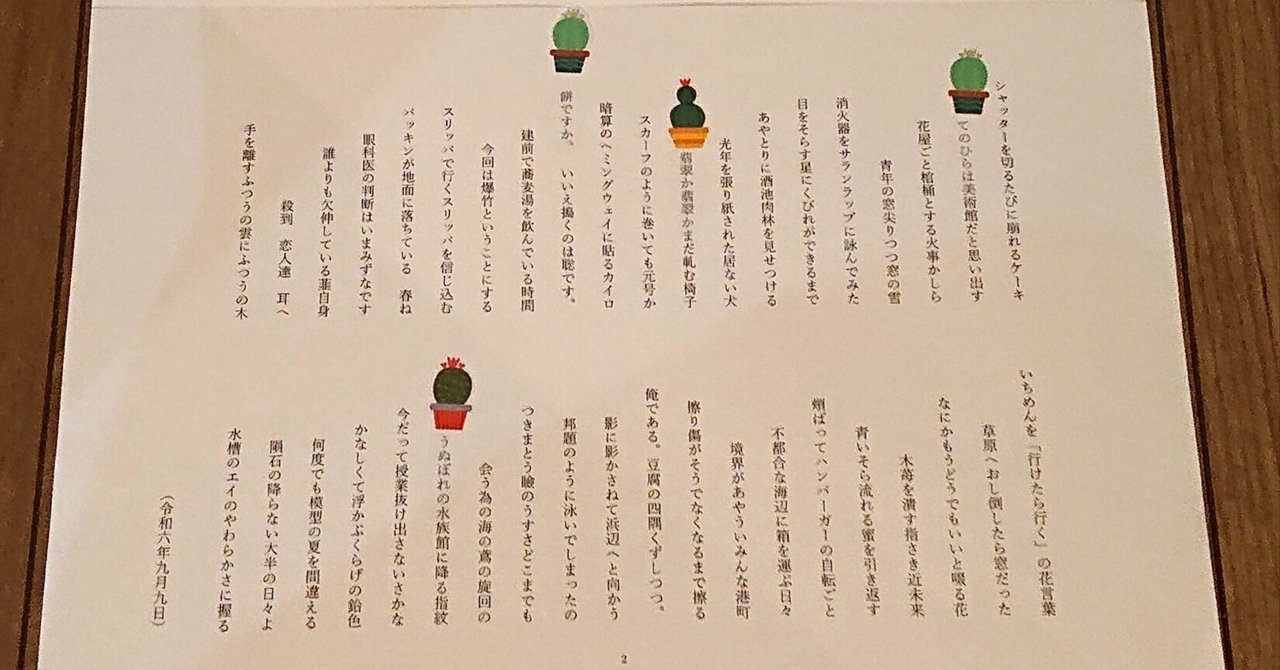 シャッターを切るたびに崩れるケーキ
てのひらは美術館だと思い出す
花屋ごと棺桶とする火事かしら
青年の窓尖りつつ窓の雪
消火器をサランラップに詠んでみた
目をそらす星にくびれができるまで
あやとりに酒池肉林を見せつける
光年を張り紙された居ない犬
翡翠か翡翠かまだ軋む椅子
スカーフのように巻いても元号か
暗算のヘミングウェイに貼るカイロ
餅ですか。 いいえ搗くのは聡です。
建前で蕎麦湯を飲んでいる時間
今回は爆竹ということにする
スリッパで行くスリッパを信じ込む
パッキンが地面に落ちている 春ね
眼科医の判断はいまみずなです
誰よりも欠伸している韮自身
殺到 恋人達 耳へ
手を離すふつうの雲にふつうの木
いちめんを「行けたら行く」の花言葉
草原へおし倒したら窓だった
なにかもうどうでもいいと啜る花
木苺を潰す指さき近未来
青いそら流れる蜜を引き返す
頬ばってハンバーガーの自転ごと
不都合な海辺に箱を運ぶ日々
境界があやういみんな港町
擦り傷がそうでなくなるまで擦る
俺である。豆腐の四隅くずしつつ。
影に影かさねて浜辺へと向かう
邦題のように泳いでしまったの
つきまとう瞼のうすさどこまでも
会う為の海の鳶の旋回の
うぬぼれの水族館に降る指紋
今だって授業抜け出さないさかな
かなしくて浮かぶくらげの鉛色
何度でも模型の夏を間違える
隕石の降らない大半の日々よ
水槽のエイのやわらかさに握る
（令和六年九月九日）
2